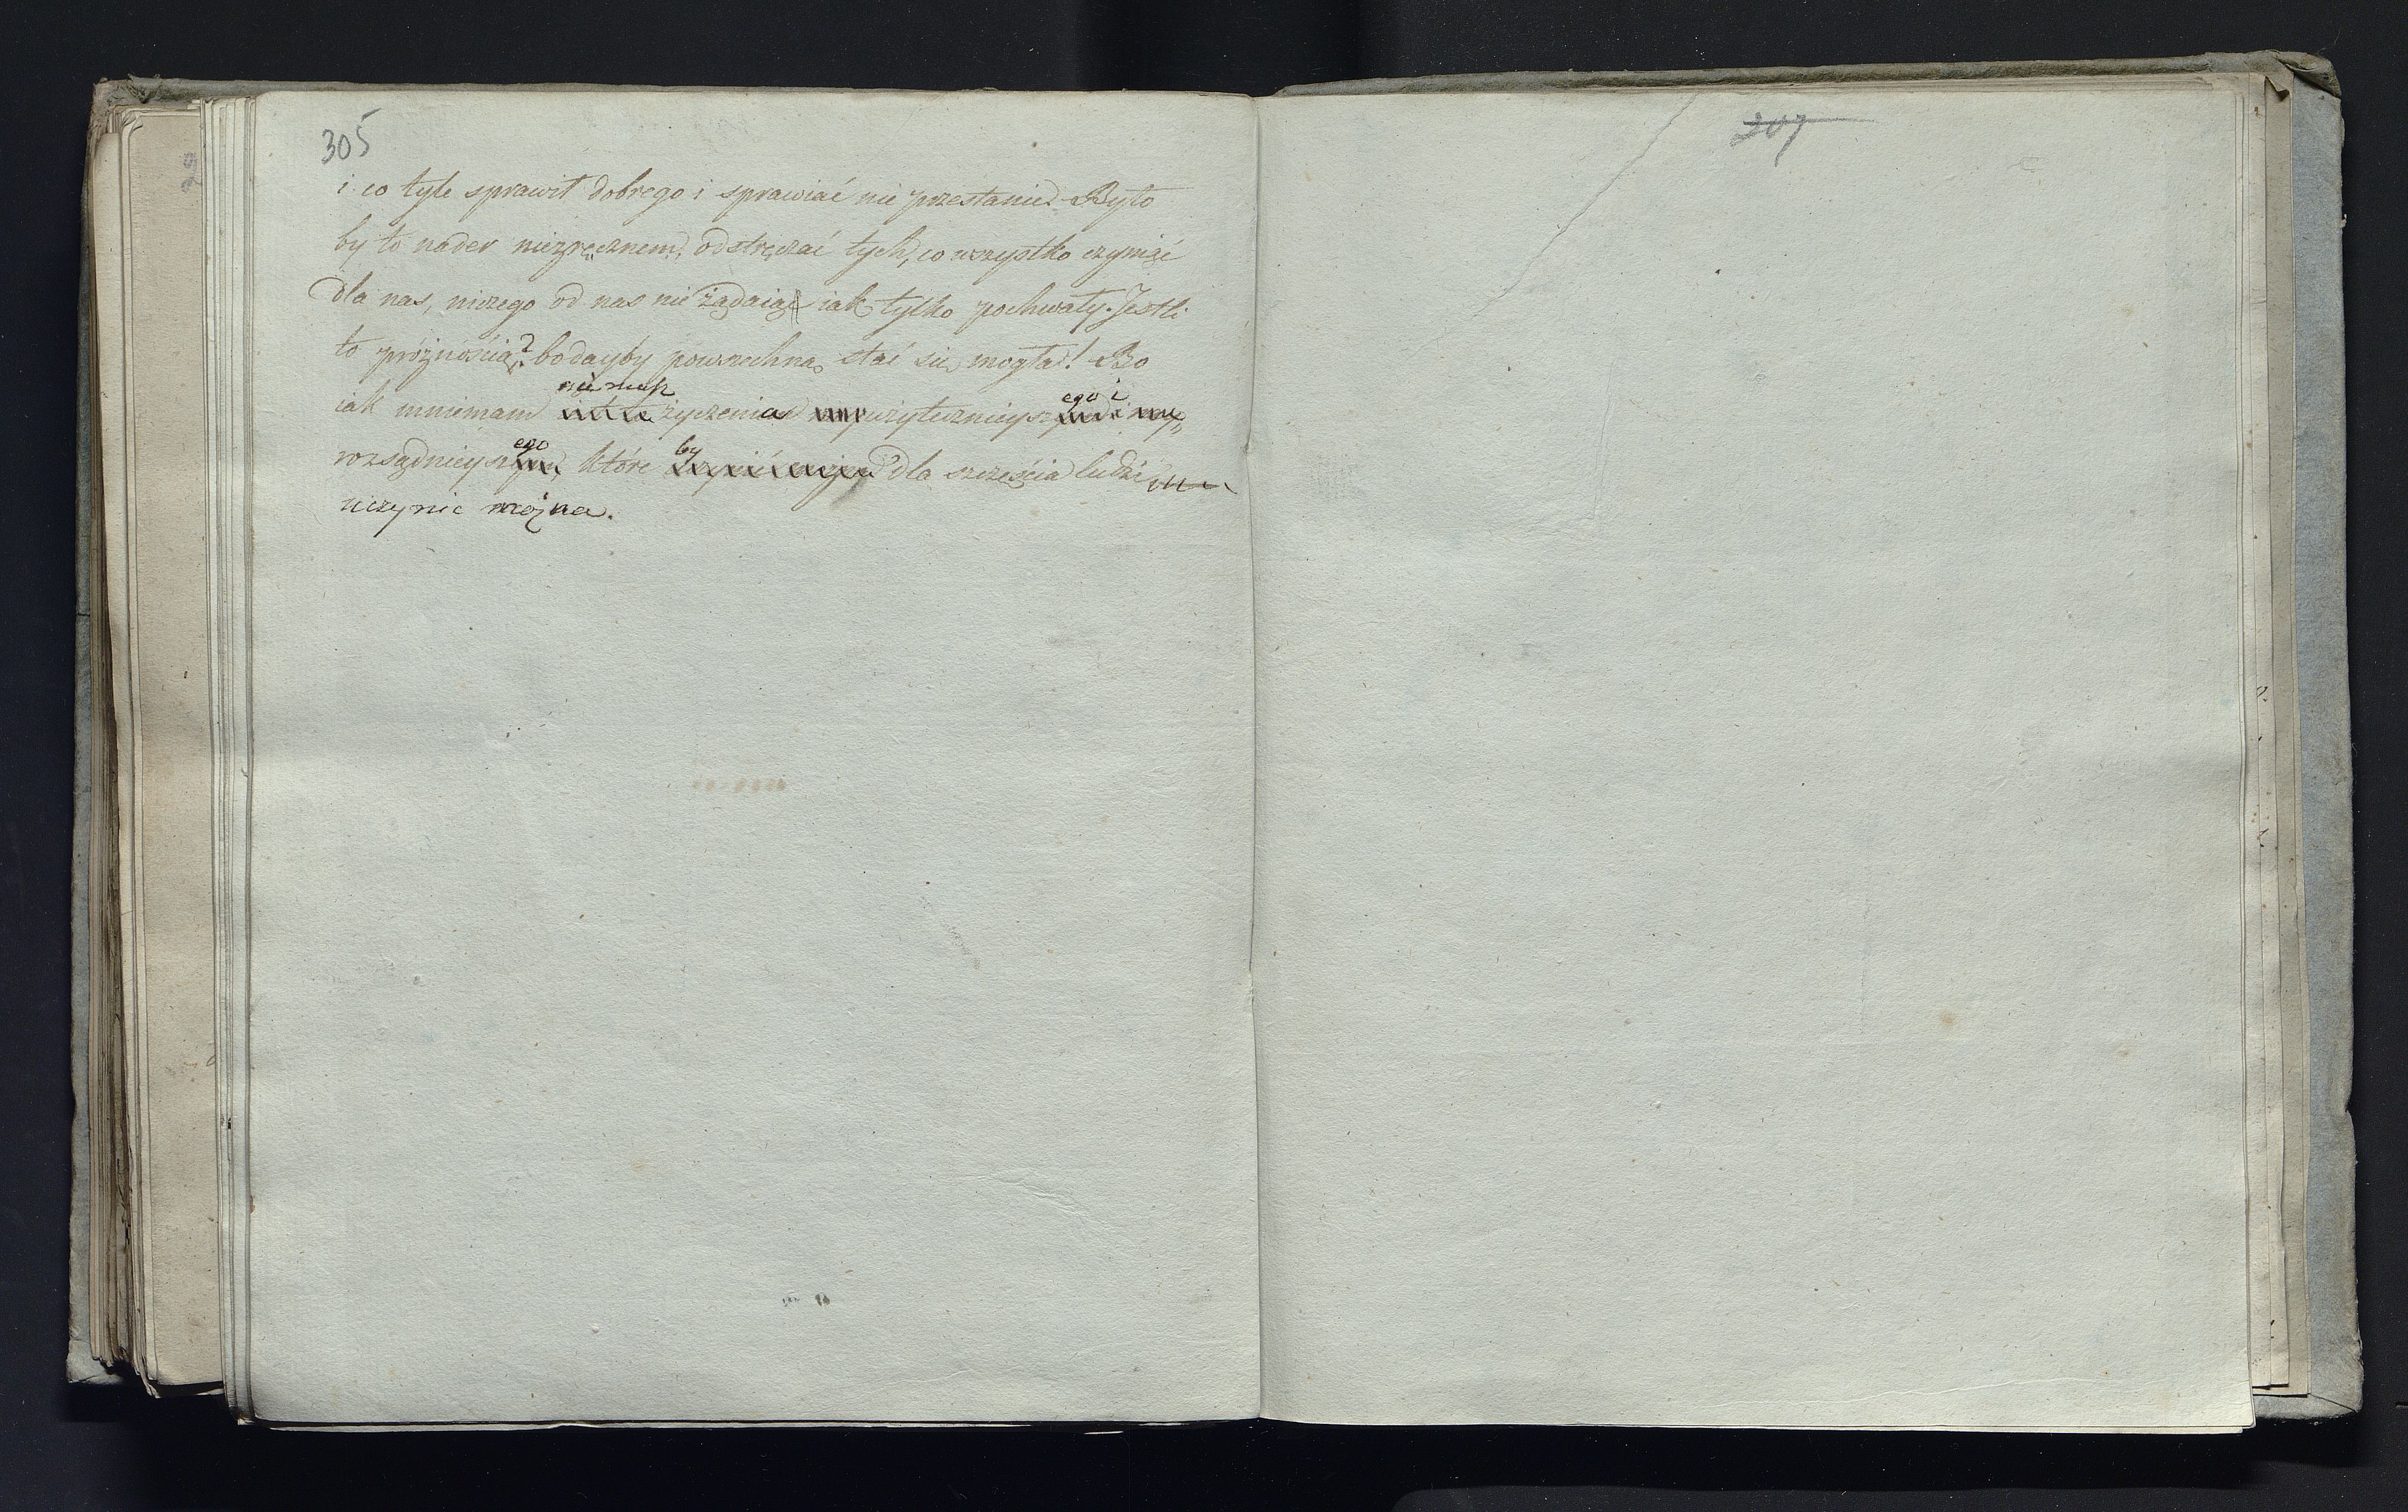 305
i co tyle sprawił dobrego i sprawiać nie przestanie. Było
by to nader niezręcznem, odstręczać tych, co wszystko czyniąc
dla nas, niczego od nas nie żądaią iak tylko pochwały. Jestli
to próżnością? bodayby powszechną stać się mogła! Bo
nie masz
ego i
iak mniemam życzenia użytecznieysz
ego
by
rozsądnieysz które dla szczęścia ludzi
uczynic można.
207